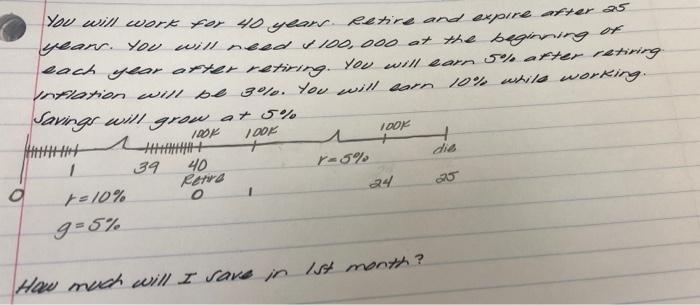 You will work for 40 years. Retire and expire after 25
years. You will need $100,000 at the beginning of
each year after retiring. You will earn 5% after retiring
Inflation will be 3%. You will earn 10% while working.
Savings will grow at 5%
100K 100K 100K
1 39 40 r=5% die
Retire 24 25
0 r=10% 0 1
g=5%
How much will I save in 1st month?